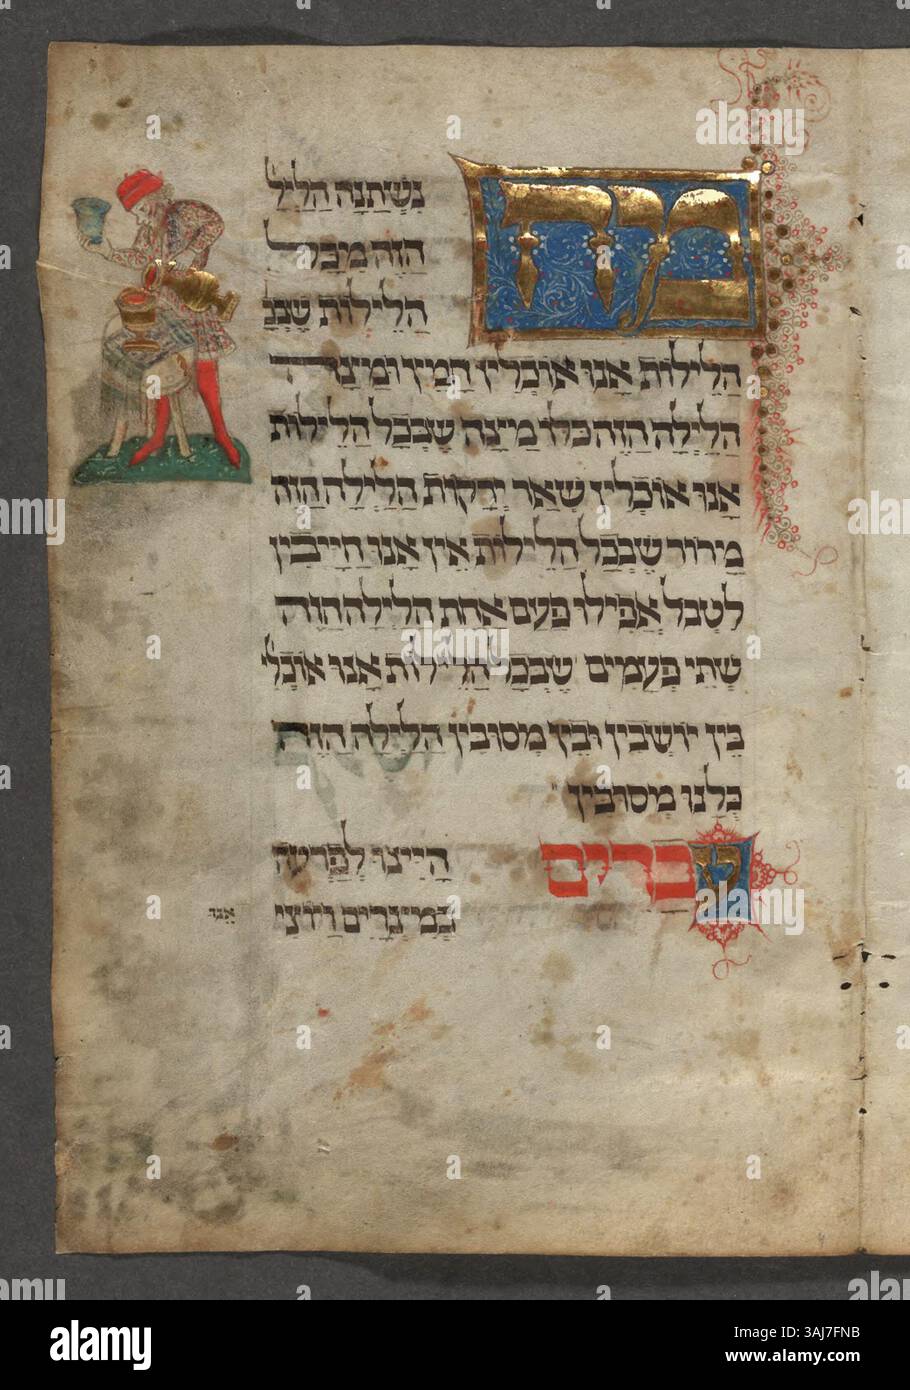 מה נשתנה הליל
הזה מכל
הלילות שבכ
הלילות אנו אוכלין חמץ ומצה
הלילה הזה כלו מצה שבכל הלילות
אנו אוכלין שאר ירקות הלילה הזה
מרור שבכל הלילות אין אנו חייבין
לטבל אפילו פעם אחת הלילה הזה
שתי פעמים שבכל הלילות אנו אוכלי
בין יושבין ובין מסובין הלילה הזה
כלנו מסובין
עברים היינו לפרעה
במצרים ויוצי
alamy
alamy
Image ID: 3AJ7FNB
www.alamy.com